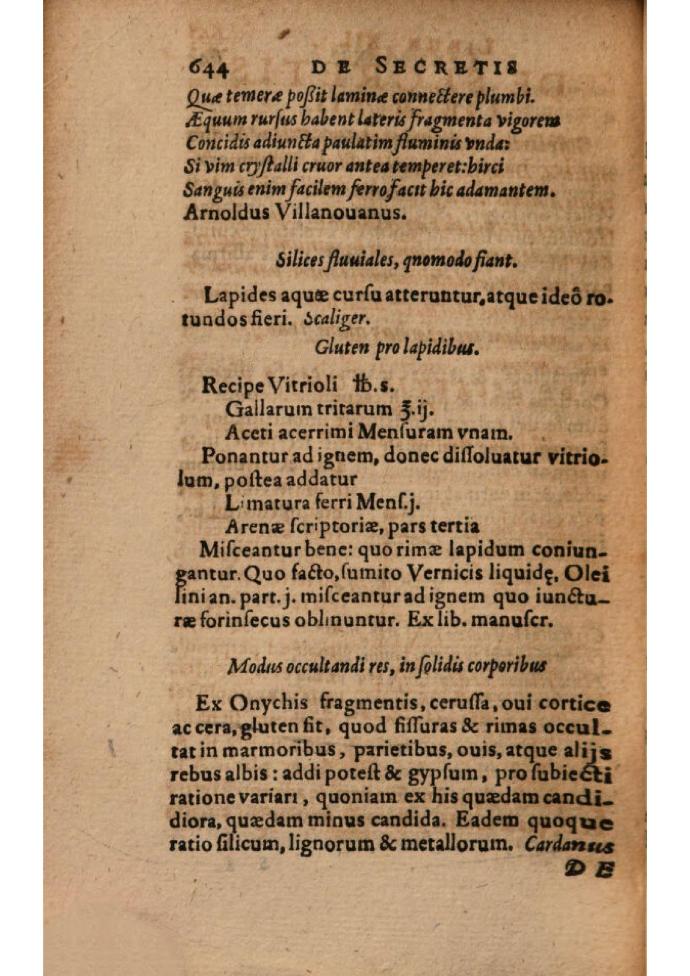 644 DE SECRETIS
Quæ temeræ poßit laminæ connectere plumbi.
Æquum rursus habent lateris fragmenta vigorem
Concidis adiuncta paulatim fluminis vnda:
Si vim crystalli cruor antea temperet: hirci
Sanguis enim facilem ferro facit hic adamantem.
Arnoldus Villanouanus.
Silices fluuiales, qnomodo fiant.
Lapides aquæ cursu atteruntur, atque ideô ro-
tundos fieri. Scaliger.
Gluten pro lapidibus.
Recipe Vitrioli ℔.s.
Gallarum tritarum ℥.ij.
Aceti acerrimi Mensuram vnam.
Ponantur ad ignem, donec dissoluatur vitrio-
lum, postea addatur
Limatura ferri Mens.j.
Arenæ scriptoriæ, pars tertia
Misceantur bene: quo rimæ lapidum coniun-
gantur. Quo facto, sumito Vernicis liquidę, Olei
lini an. part. j. misceantur ad ignem quo iunctu-
ræ forinsecus oblinuntur. Ex lib. manuscr.
Modus occultandi res, in solidis corporibus
Ex Onychis fragmentis, cerussa, oui cortice
ac cera, gluten fit, quod fissuras & rimas occul-
tat in marmoribus, parietibus, ouis, atque alijs
rebus albis: addi potest & gypsum, pro subiecti
ratione variari, quoniam ex his quædam candi-
diora, quædam minus candida. Eadem quoque
ratio silicum, lignorum & metallorum. Cardanus
DE